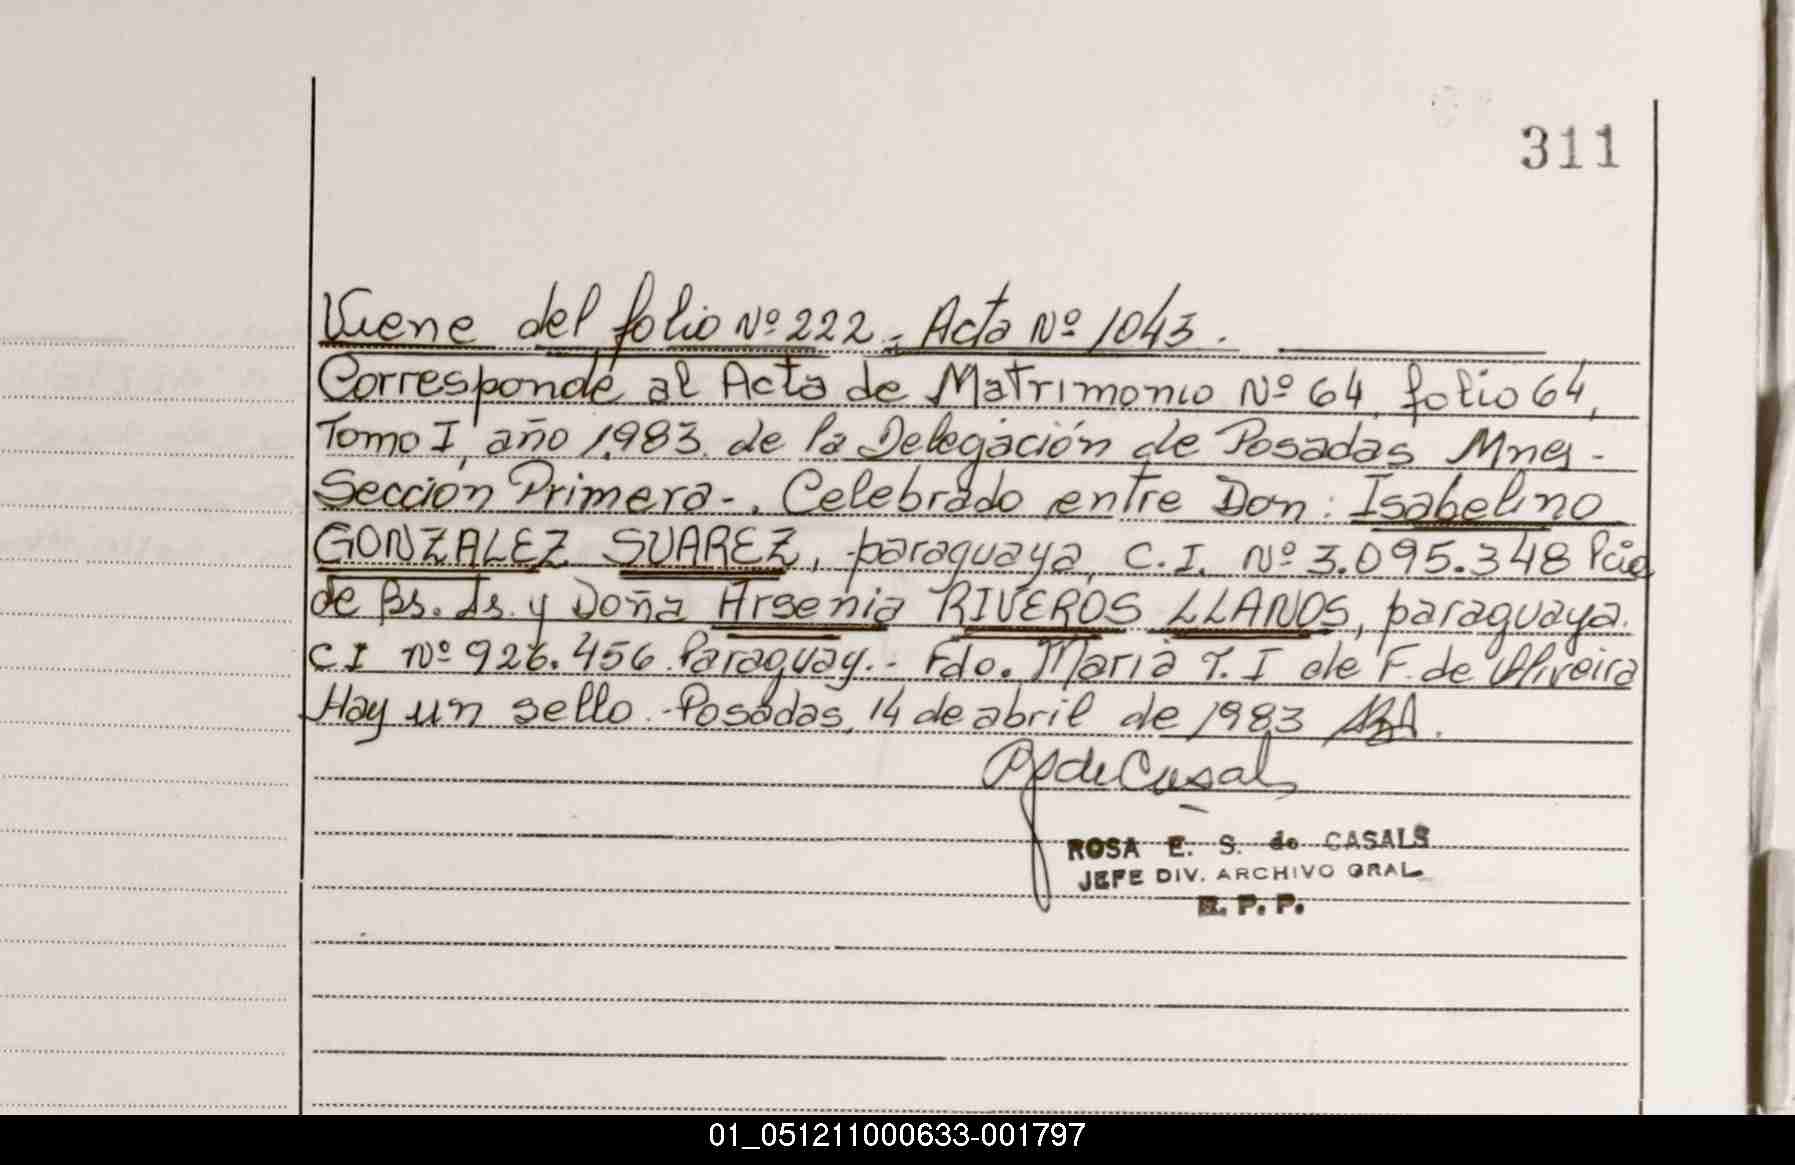 311
Viene del folio Nº 222. Acta Nº 1043.
Corresponde al Acta de Matrimonio Nº 64, folio 64,
Tomo I, año 1983. de la Delegación de Posadas Mnes-
Sección Primera-. Celebrado entre Don: Isabelino
GONZALEZ SUAREZ, paraguaya, C.I. Nº 3.095.348 Pcia
de Bs. As. y Doña Arsenia RIVEROS LLANOS, paraguaya.
CI Nº 926.456 Paraguay.- Fdo. Maria T. I de F. de Oliveira
Hay un sello. Posadas, 14 de abril de 1983
de Casals
ROSA E. S. de CASALS
JEFE DIV. ARCHIVO GRAL.
R. P. P.
01_051211000633-001797